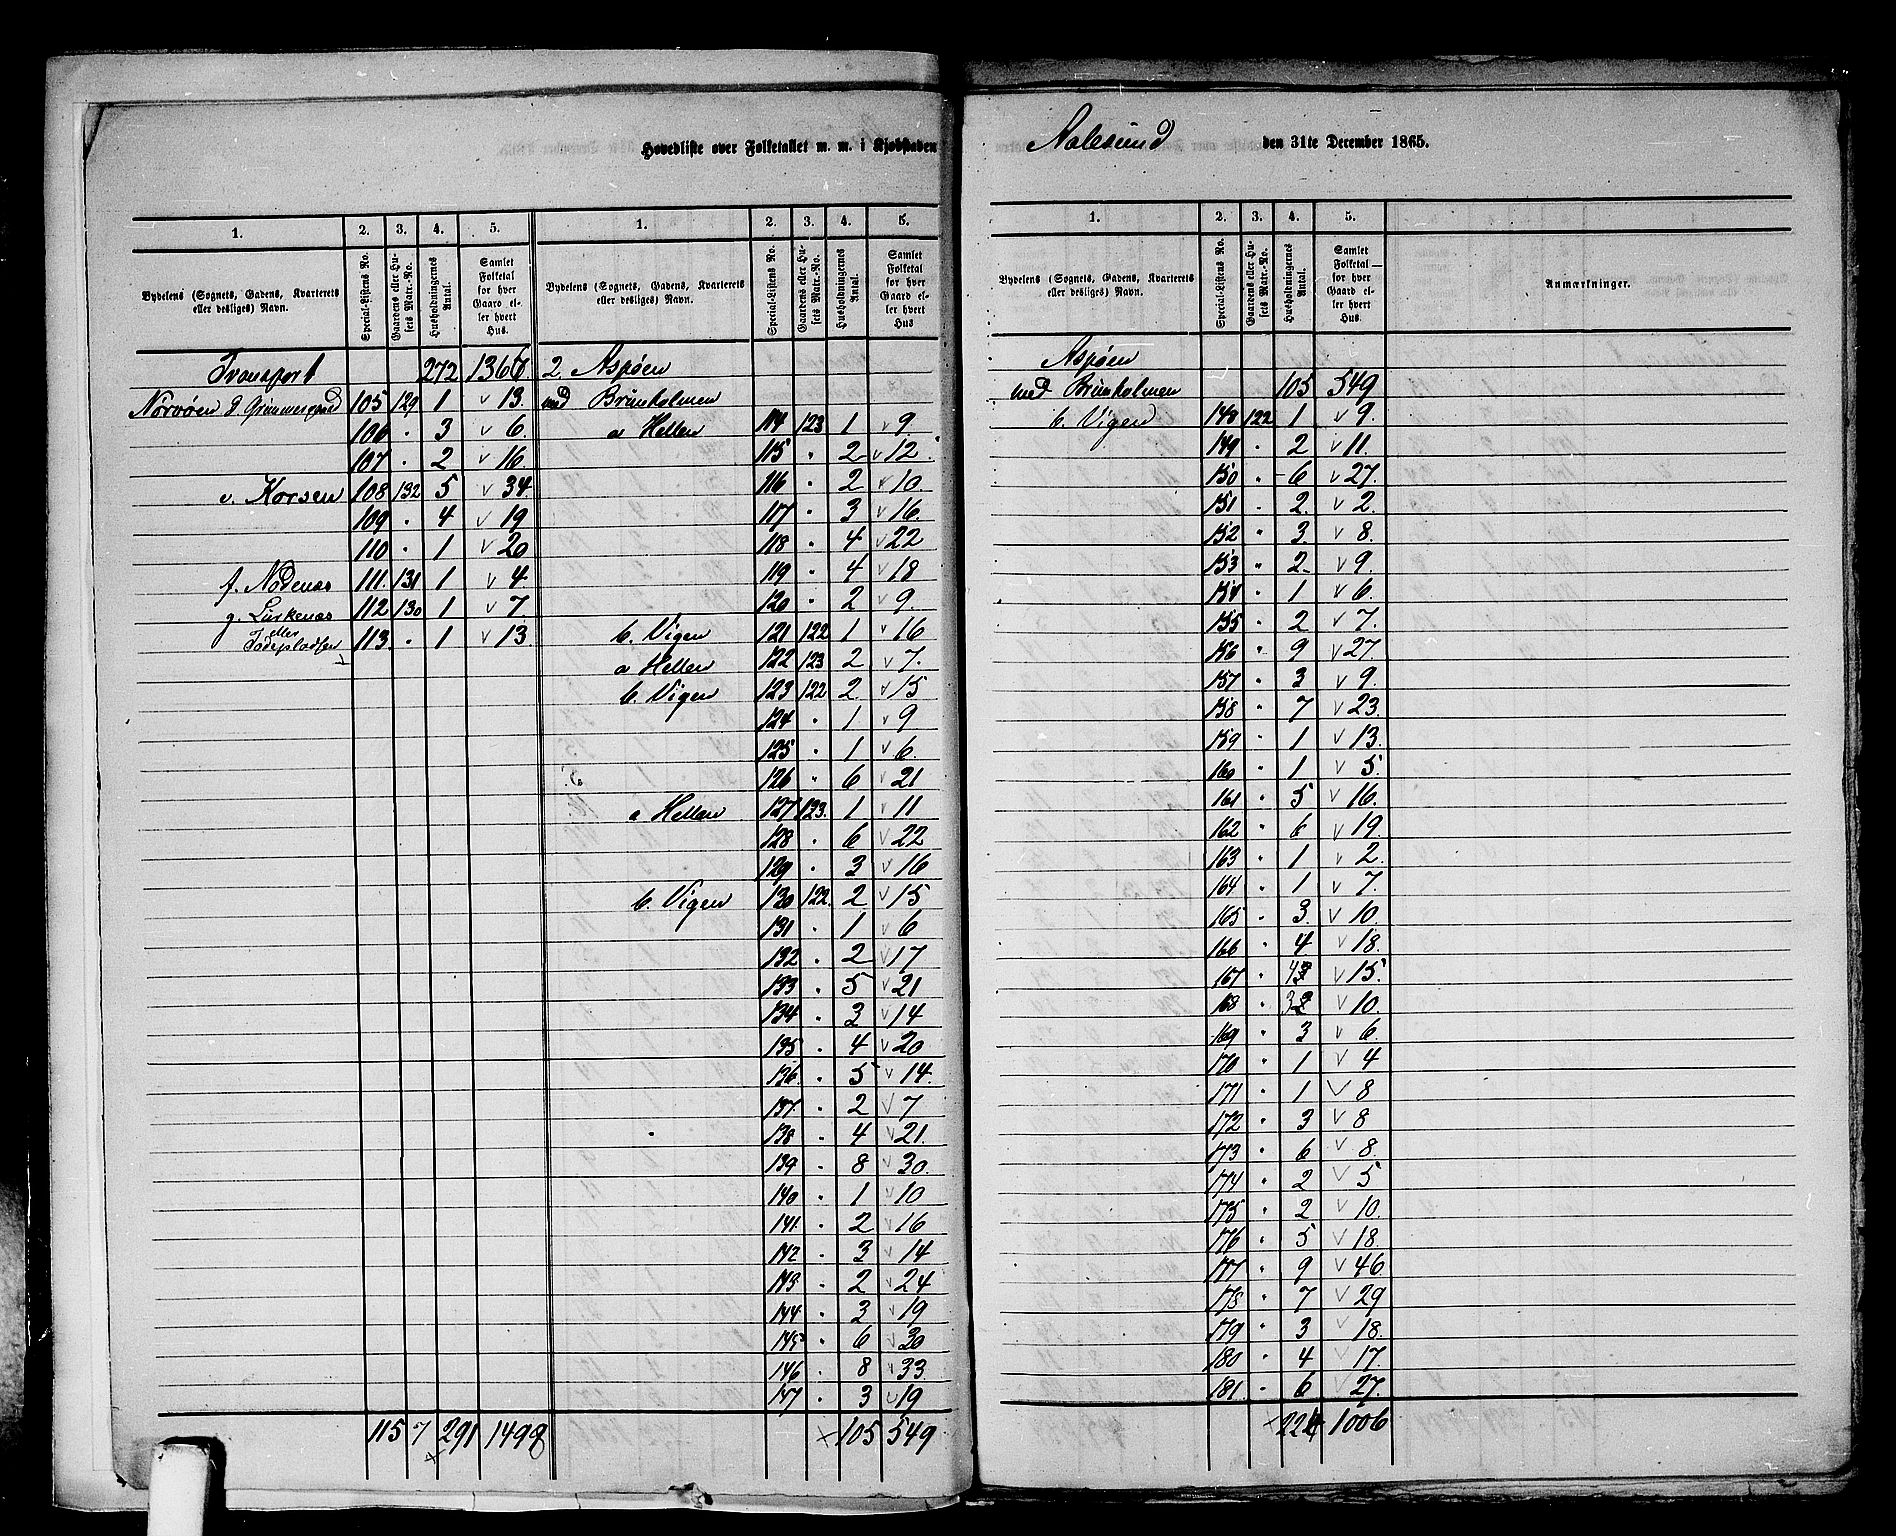 Hovedliste over Folketallet m. m. i Kjøbstaden Aalesund den 31te December 1865.
1. 2. 3. 4. 5. 1. 2. 3. 4. 5.
Bydelens (Sognets, Gadens, Kvarterets eller desliges) Navn. Special-Listens No. Gaardens eller Husets Matr.-No. Husholdningernes Antal. Samlet Folketal for hver Gaard eller hvert Hus.
Bydelens (Sognets, Gadens, Kvarterets eller desliges) Navn. Special-Listens No. Gaardens eller Husets Matr.-No. Husholdningernes Antal. Samlet Folketal for hver Gaard eller hvert Hus
Transport 272 1366
Nørvøen d. Grimmergaard 105 129 1 v 13.
106 " 3 v 6.
107 " 2 v 16.
e. Korsen 108 132 5 v 34
109 " 4 v 19
110 " 1 v 20
f. Nødenæs 111. 131 1 v 4
g. Lirkenæs 112 130 1 v 7
eller 113. " 1 v 13.
115 7 291 1498
2. Aspøen
med Brunholmen
a Hellen 114 123 1 v 9.
115 " 2 v 12.
116 " 2 v 10
117 " 3 v 16.
118 " 4 v 22
119 " 4 v 18
120 " 2 v 9.
b. Vigen 121 122 1 v 16
a Hellen 122 123 2 v 7.
b. Vigen 123 122 2 v 15
124 " 1 v 9
125 " 1 v 6.
126 " 6 v 21
a Hellen 127 123. 1 v 11
128 " 6 v 22
129 " 3 v 16
b. Vigen 130 122. 2 v 15
131 " 1 v 6
132 " 2 v 17
133 " 5 v 21
134 " 3 v 14
135 " 4 v 20
136. " 5 v 14.
137. " 2 v 7
138 " 4 v 21.
139 " 8 v 30.
140 " 1 v 10
141. " 2 v 16
142 " 3 v 14
143 " 2 v 24
144 " 3 v 19
145 " 6 v 30
146 " 8 v 33
147 " 3 v 19
× 105 549
1. 2. 3. 4. 5.
Bydelens (Sognets, Gadens, Kvarterets eller desliges) Navn. Special-Listens No. Gaardens eller Husets Matr.-No. Husholdningernes Antal. Samlet Folketal for hver Gaard eller hvert Hus. Anmærkninger.
Aspøen
med Brunholmen 105 549
b. Vigen 148 122 1 v 9.
149 " 2 v 11.
150 " 6 v 27.
151 " 2. v 2.
152 " 3. v 8.
153 " 2 v 9.
154 " 1 v 6.
155 " 2 v 7.
156 " 9 v 27.
157 " 3 v 9.
158 " 7 v 23.
159 " 1 v 13.
160 " 1 v 5.
161 " 5 v 16.
162 " 6 v 19.
163 " 1 v 2.
164 " 1 v 7.
165 " 3. v 10.
166 " 4 v 18.
167 " v 15.
168 " v 10.
169 " 3 v 6.
170 " 1 v 4
171 " 1 v 8
172 " 3 v 8
173 " 6 v 8.
174 " 2 v 5
175 " 2 v 10.
176 " 5 v 18.
177 " 9 v 46.
178 " 7 v 29
179 " 3 v 18.
180 " 4 v 17.
181. " 6 v 27.
× 224 1006